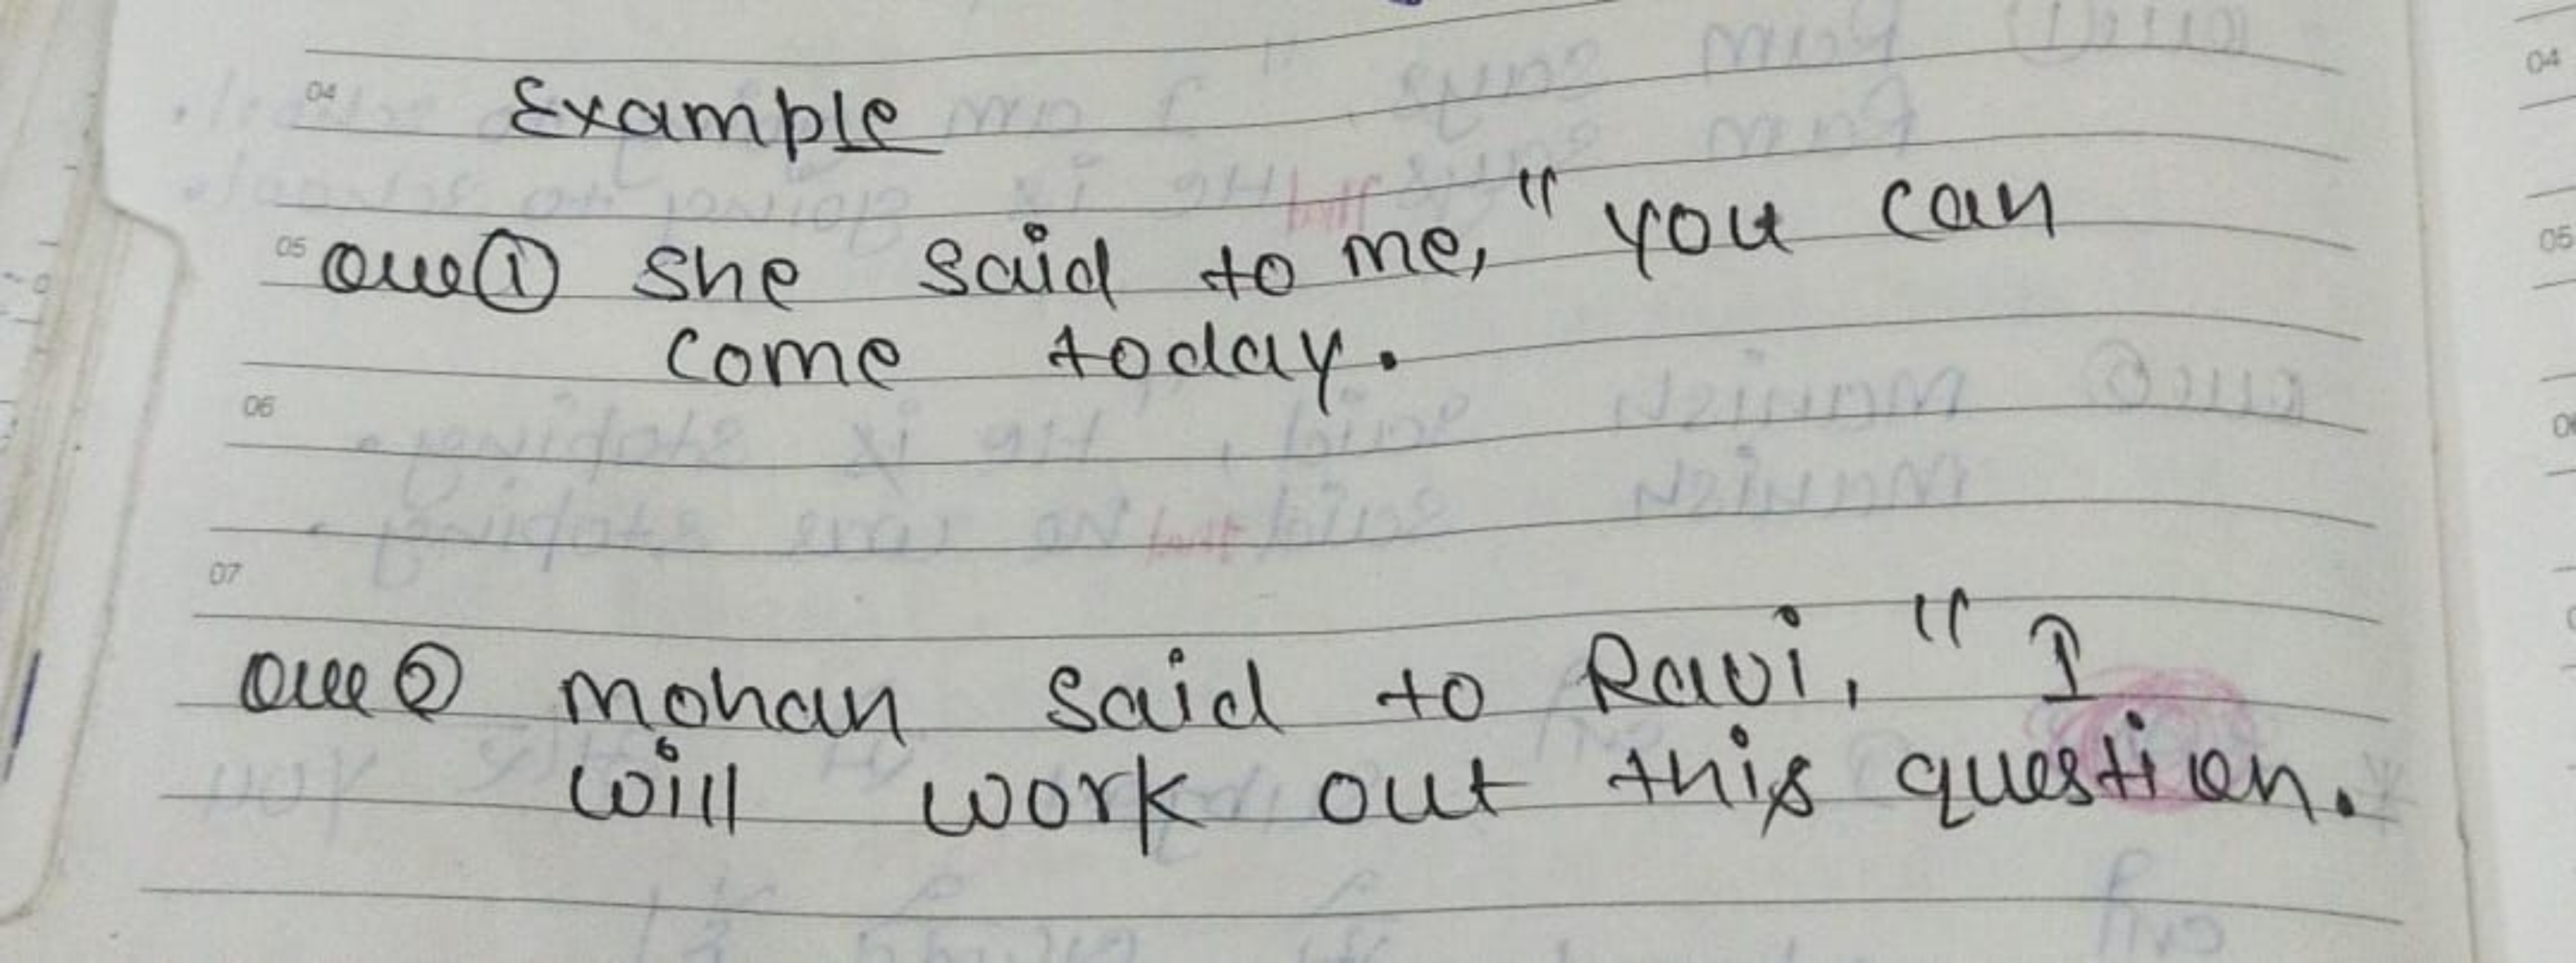 04
Example
05 Que ① She said to me, " you can
come today.
06
07
Que ② Mohan said to Ravi, " I
will work out this question.
04
05